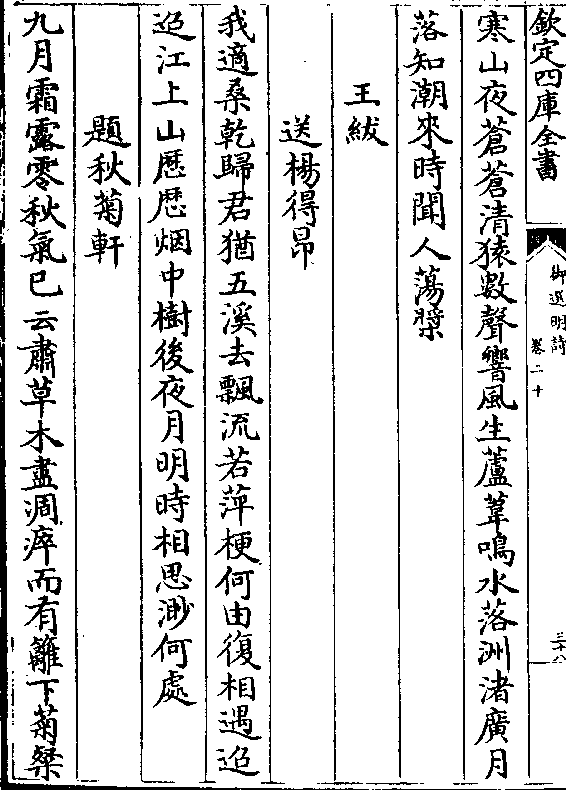 欽定四庫全書
御選明詩
卷二十
三十八
寒山夜蒼蒼清猿數聲響風生蘆葦鳴水落洲渚廣月
落知潮來時聞人蕩槳
王紱
送楊得昂
我適桑乾歸君猶五溪去飄流若萍梗何由復相遇迢
迢江上山歴歴烟中樹後夜月明時相思渺何處
題秋菊軒
九月霜露零秋氣已云肅草木盡凋瘁而有籬下菊粲